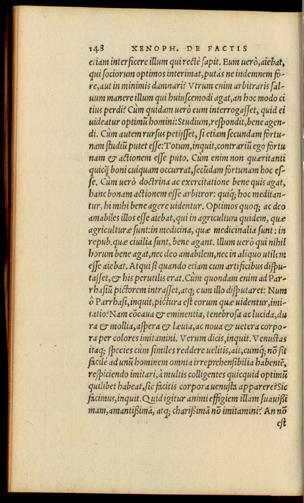 148 XENOPH. DE FACTIS
etiam interficere illum qui rectè sapit. Eum uerò, aiebat,
qui sociorum optimos interimat, putás ne indemnem fo-
re, aut in minimis damnari? Vtrum enim arbitraris sal-
uum manere illum qui huiuscemodi agat, an hoc modo ci
tius perdi? Cùm quidam uerò eum interrogasset, quid ei
uideatur optimũ homini: Studium, respondit, bene agen-
di. Cùm autem rursus petijsset, si etiam secundam fortu-
nam studiũ putet esse: Totum, inquit, contrariũ ego fortu
nam & actionem esse puto. Cùm enim non quæritanti
quicq̃ boni cuiquam occurrat, secũdam fortunam hoc es-
se. Cùm uerò doctrina ac exercitatione bene quis agat,
hanc bonam actionem esse arbitror: quiq́; hoc meditan-
tur, hi mihi bene agere uidentur. Optimos quoq; ac deo
amabiles illos esse aiebat, qui in agricultura quidem, quæ
agriculturæ sunt: in medicina, quæ medicinalia sunt: in
repub. quæ ciuilia sunt, bene agant. Illum uerò qui nihil
horum bene agat, nec deo amabilem, nec in aliquo utilem
esse aiebat. Atqui si quando etiam cum artificibus dispu-
tasset, & his perutilis erat. Cùm quondam enim ad Par-
rhasiũ pictorem intrasset, atq; cum illo disputaret: Num
ô Parrhasi, inquit, pictura est eorum quæ uidentur, imi-
tatio? Nam cõcaua & eminentia, tenebrosa ac lucida, du
ra & mollia, aspera & læuia, ac noua & uetera corpo-
ra per colores imitamini. Verum dicis, inquit. Venustas
itaq; species cùm similes reddere uelitis, an, cumq; nõ sit
facilè ad unũ hominem omnia irreprehensibilia habentẽ,
respiciendo imitari, à multis colligentes quicquid optimũ
quilibet habeat, sic facitis corpora uenusta apparere? Sic
facimus, inquit. Quid igitur animi effigiem illam suauissi
mam, amantissimã, atq; charissimã nõ imitamini? An nõ
est